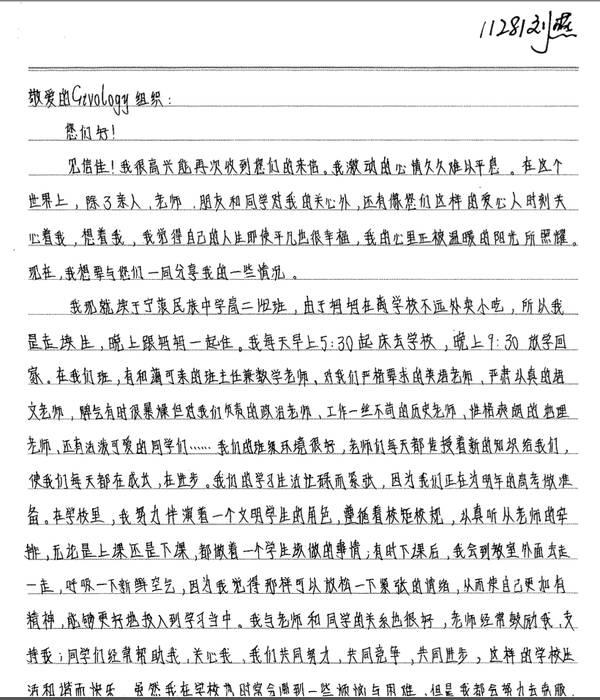 11281刘燕
敬爱的Givology组织：
您们好！
见信佳！我很高兴能再次收到您们的来信。我激动的心情久久难以平息。在这个
世界上，除了亲人、老师、朋友和同学对我的关心外，还有像您们这样的爱心人时刻关
心着我，想着我，我觉得自己的人生即使平凡也很幸福，我的心里正被温暖的阳光所照耀。
现在，我想要与您们一同分享我的一些情况。
我现就读于宁蒗民族中学高二142班，由于妈妈在离学校不远处卖小吃，所以我
是走读生，晚上跟妈妈一起住。我每天早上5:30起床去学校，晚上9:30放学回
家。在我们班，有和蔼可亲的班主任兼数学老师、对我们严格要求的英语老师、严肃认真的语
文老师，脾气有时很暴燥但对我们负责的政治老师、工作一丝不苟的历史老师、性格爽朗的地理
老师，还有活泼可爱的同学们……我们的班级环境很好，老师们每天都传授着新的知识给我们，
使我们每天都在成长，在进步。我们的学习生活忙碌而紧张，因为我们正在为明年的高考做准
备。在学校里，我努力伴演着一个文明学生的角色，遵循着校矩校规，认真听从老师的安
排，无论是上课还是下课，都做着一个学生该做的事情；有时下课后，我会到教室外面去走
一走，呼吸一下新鲜空气，因为我觉得那样可以放松一下紧张的情绪，从而使自己更加有
精神，能够更好地投入到学习当中。我与老师和同学的关系也很好，老师经常鼓励我，支
持我；同学们经常帮助我，关心我，我们共同努力，共同竞争，共同进步，这样的学校生
活和谐而快乐。虽然我在学校有时常会遇到一些烦恼与困难，但是我都会努力去克服